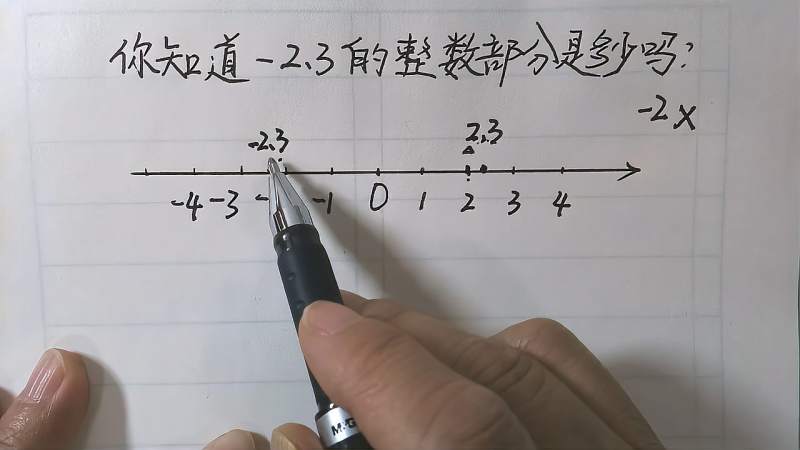 你知道-2.3的整数部分是多少吗?
-2 x
-2.3 2.3
-4 -3 - -1 0 1 2 3 4
M&G